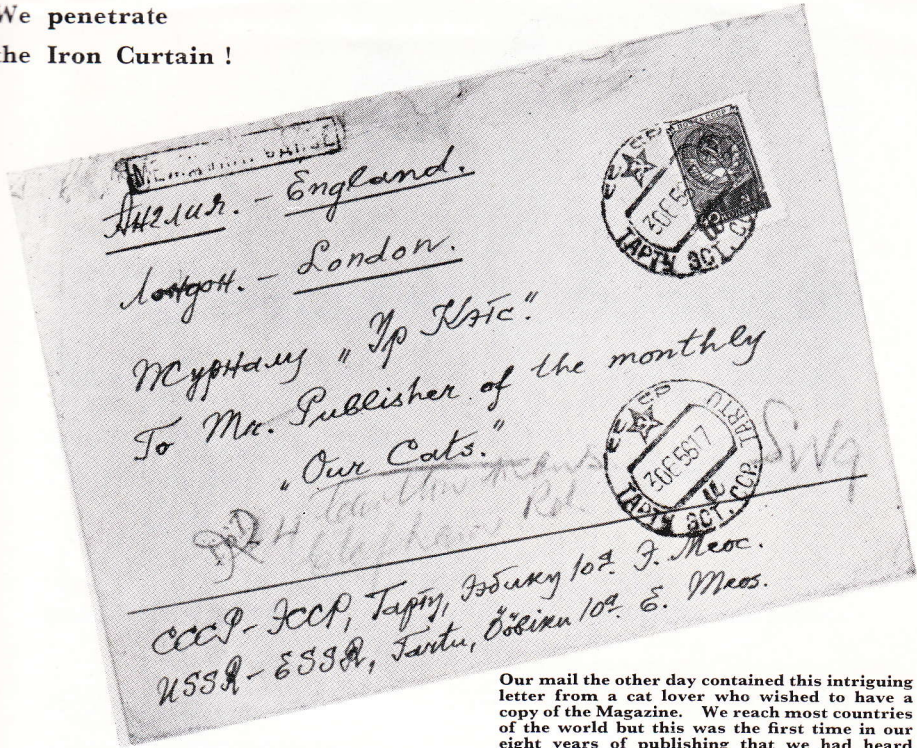 We penetrate
the Iron Curtain !
Англия. - England.
Лондон. - London.
Журналу „Ур Кэтс".
To Mr. Publisher of the monthly
„Our Cats."
Clapham Rd. SW9
СССР-ЭССР, Тарту, Ээбику 10а. Э. Меос.
USSR-ESSR, Tartu, Ööbiku 10a. E. Meos.
EESTI
30 6 56
ТАРТУ ЭСТ. ССР
30 6 56 17
TARTU
ТАРТУ ЭСТ. ССР.
Our mail the other day contained this intriguing
letter from a cat lover who wished to have a
copy of the Magazine. We reach most countries
of the world but this was the first time in our
eight years of publishing that we had heard